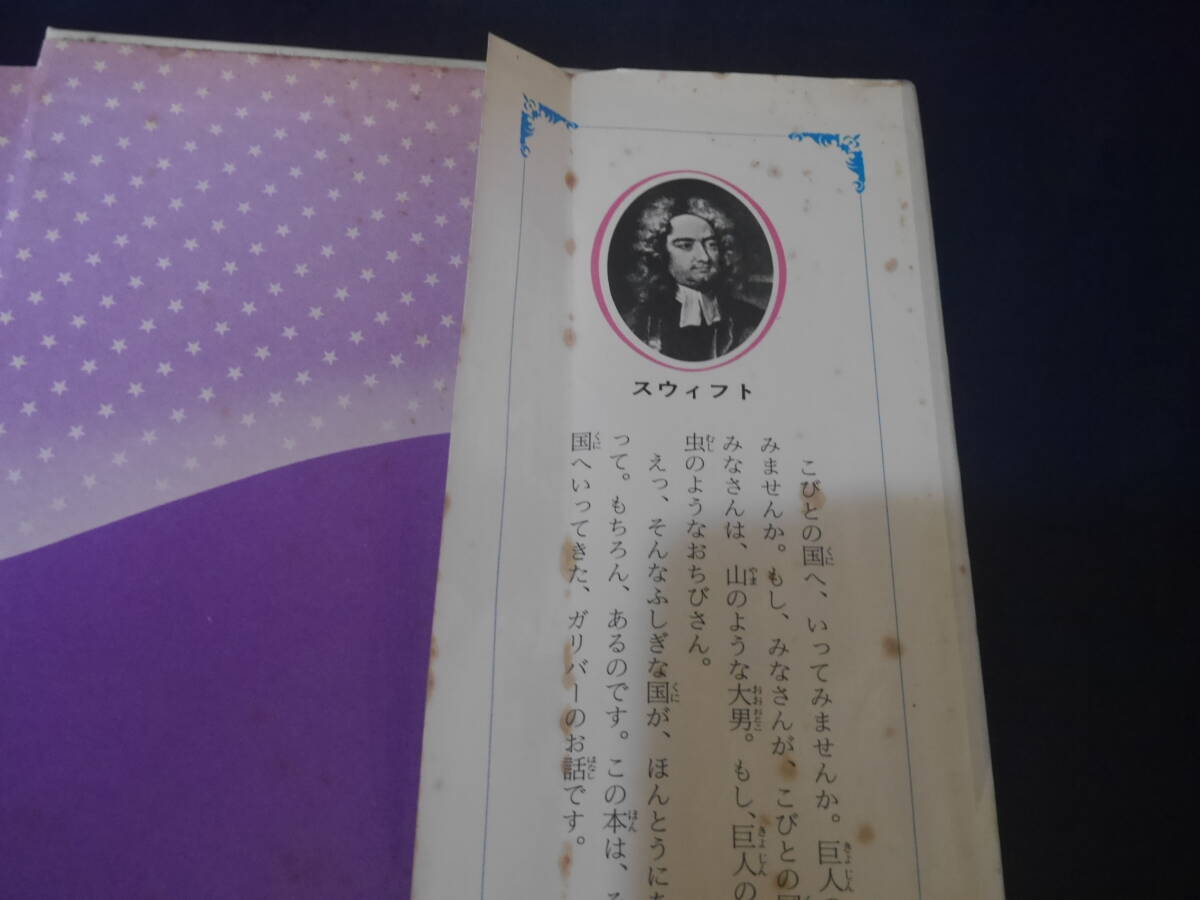 スウィフト
こびとの国へ、いってみませんか。巨人
みませんか。もし、みなさんが、こびとの国
みなさんは、山のような大男。もし、巨人の
虫のようなおちびさん。
えっ、そんなふしぎな国が、ほんとうにあ
って。もちろん、あるのです。この本は、そ
国へいってきた、ガリバーのお話です。